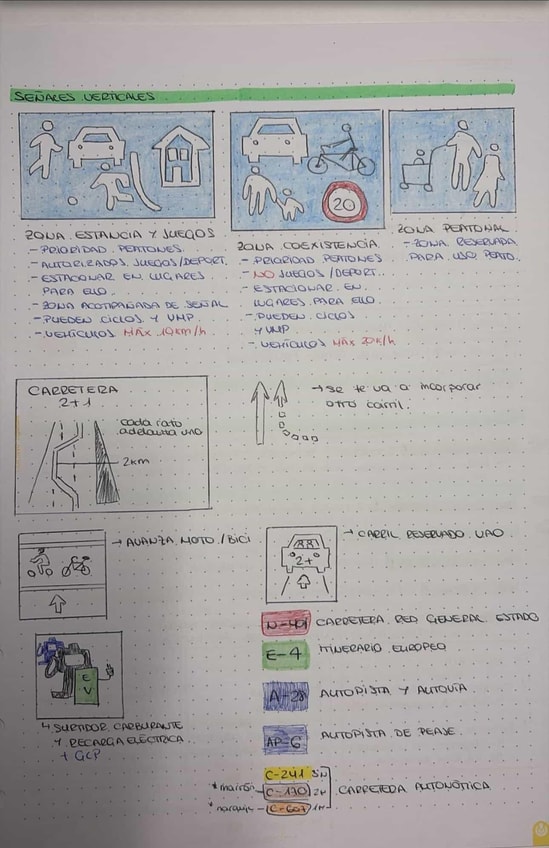 SEÑALES VERTICALES
20
ZONA ESTANCIA Y JUEGOS
- PRIORIDAD PEATONES
- AUTORIZADOS JUEGOS/DEPORT.
- ESTACIONAR EN LUGARES
PARA ELLO.
- ZONA ACOMPAÑADA DE SEÑAL
- PUEDEN CICLOS Y VMP
- VEHÍCULOS MÁX 10km/h
ZONA COEXISTENCIA
- PRIORIDAD PEATONES
- NO JUEGOS/DEPORT.
- ESTACIONAR EN
LUGARES PARA ELLO
- PUEDEN CICLOS
Y VMP
- VEHÍCULOS MÁX 20k/h
ZONA PEATONAL
- ZONA RESERVADA
PARA USO PEATO.
CARRETERA
2+1
cada rato
adelanta uno
2km
→ se te va a incorporar
otro carril.
→ AVANZA MOTO/BICI
→ CARRIL RESERVADO VAO
2+
E
V
↳ SURTIDOR CARBURANTE
Y RECARGA ELÉCTRICA
+ GLP
N-401 CARRETERA RED GENERAL ESTADO
E-4 ITINERARIO EUROPEO
A-28 AUTOPISTA Y AUTOVÍA
AP-6 AUTOPISTA DE PEAJE
C-241
*marrón C-130 2N
*naranja C-607 1N
CARRETERA AUTONÓMICA